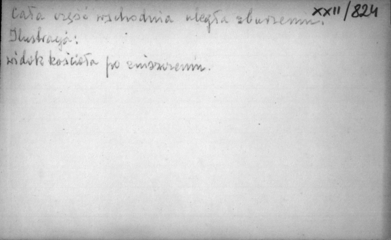 XXII/824
Cała część wschodnia uległa zburzeniu.
Ilustracja:
widok kościoła po zniszczeniu.